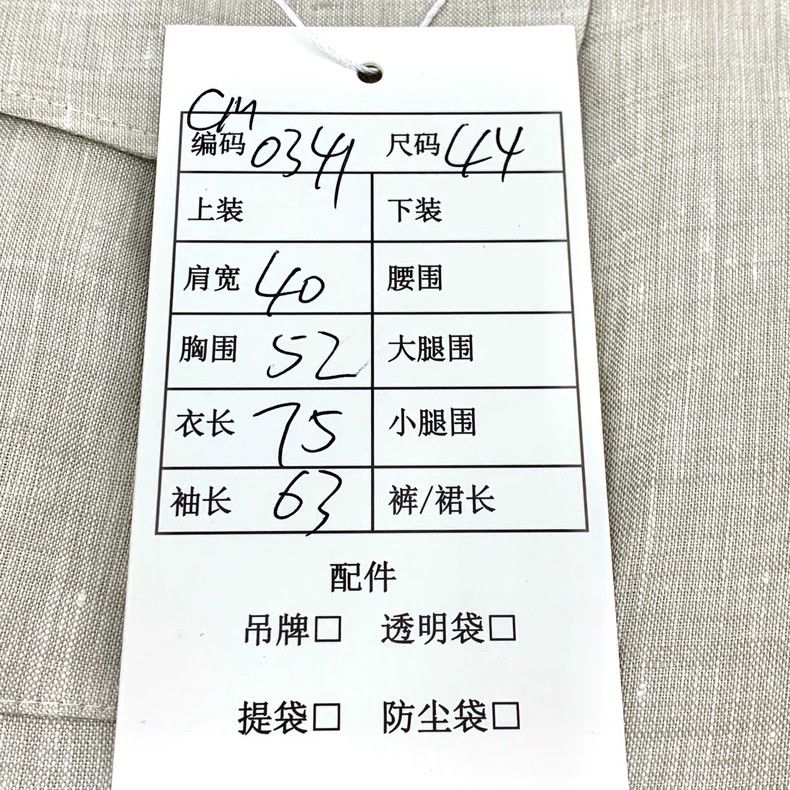 CM
编码 0341 尺码 44
上装 下装
肩宽 40 腰围
胸围 52 大腿围
衣长 75 小腿围
袖长 63 裤/裙长
配件
吊牌□ 透明袋□
提袋□ 防尘袋□